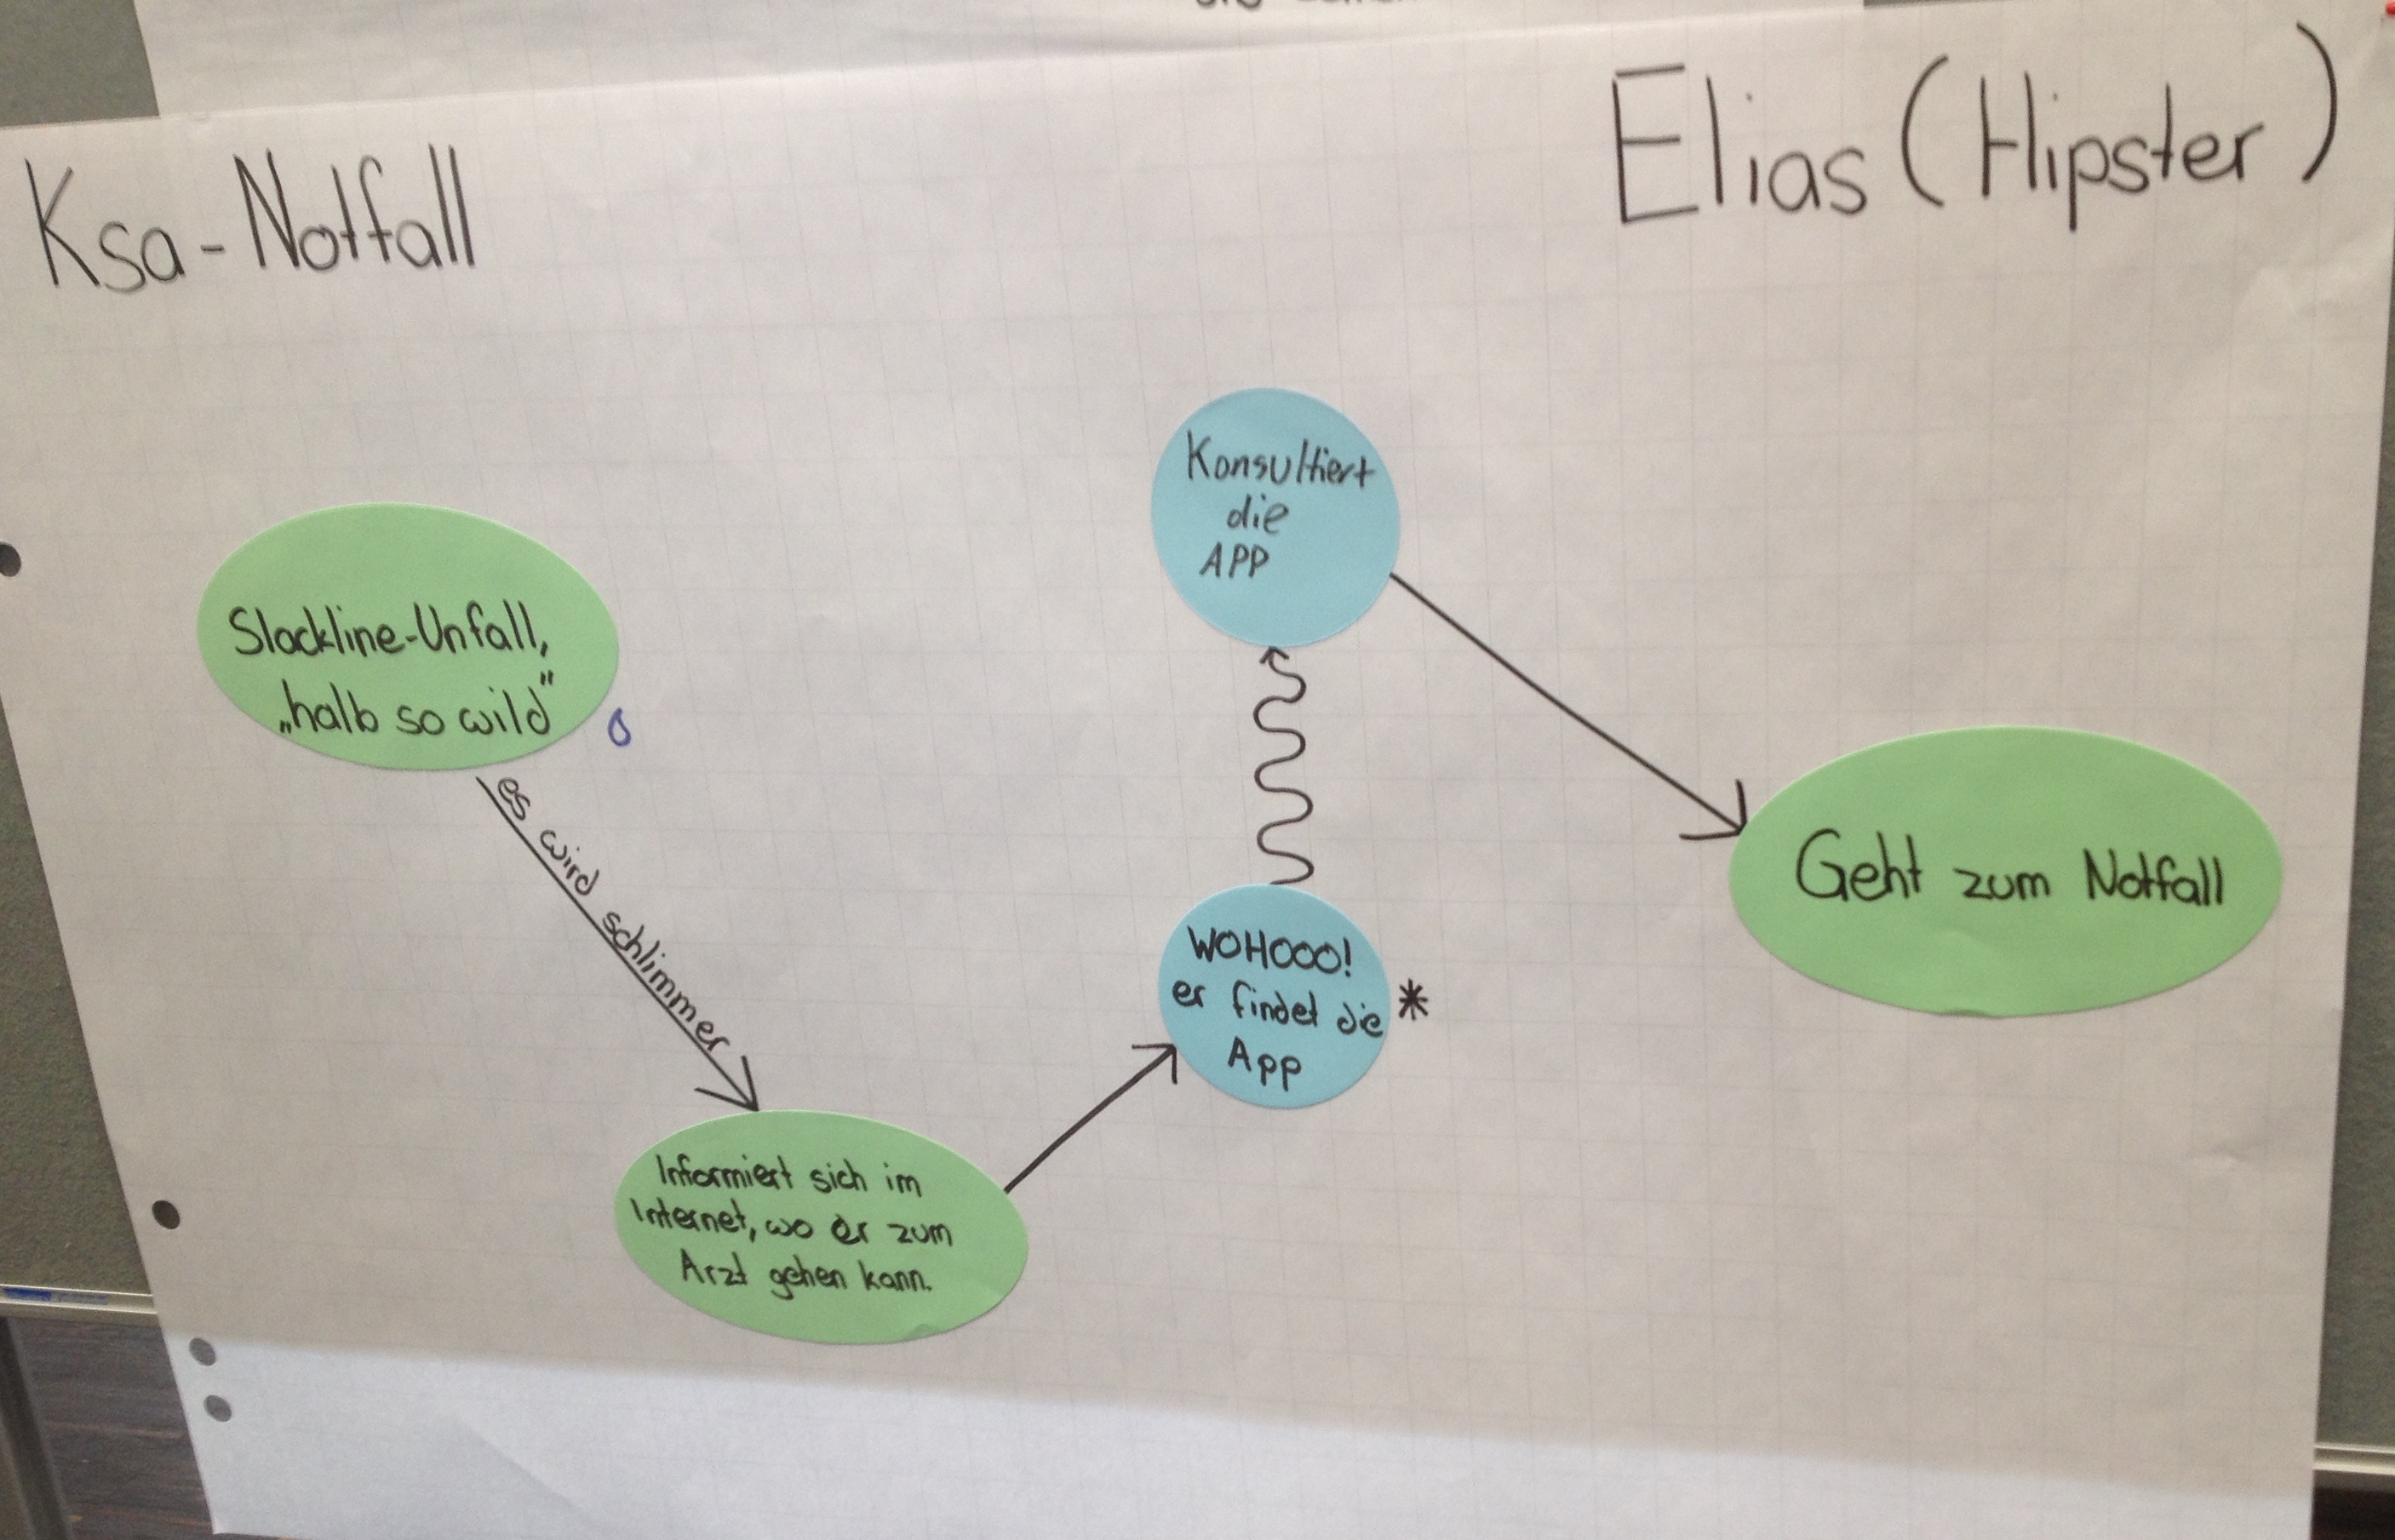 Ksa-Notfall
Elias (Hipster)
Slackline-Unfall,
„halb so wild"
es wird schlimmer
Informiert sich im
Internet, wo er zum
Arzt gehen kann.
WOHOOO!
er findet die *
App
Konsultiert
die
APP
Geht zum Notfall